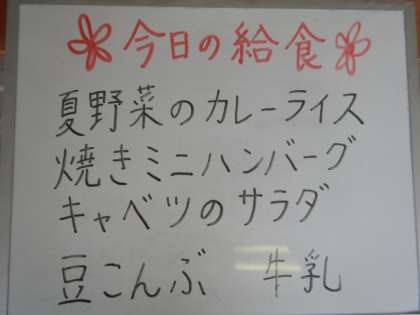 今日の給食
夏野菜のカレーライス
焼きミニハンバーグ
キャベツのサラダ
豆こんぶ 牛乳